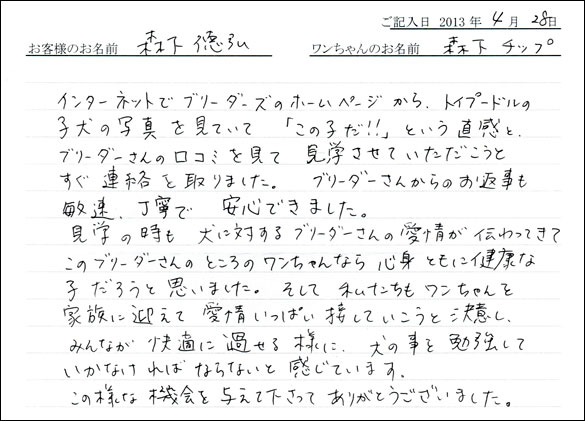 ご記入日 2013年 4月 28日
お客様のお名前 森下 徳弘 ワンちゃんのお名前 森下 チップ
インターネットでブリーダーズのホームページから、トイプードルの
子犬の写真を見ていて 「この子だ!!」という直感と、
ブリーダーさんの口コミを見て 見学させていただこうと
すぐ連絡を取りました。 ブリーダーさんからのお返事も
敏速、丁寧で 安心できました。
見学の時も 犬に対するブリーダーさんの愛情が伝わってきて
このブリーダーさんのところのワンちゃんなら 心身ともに健康な
子だろうと思いました。そして私たちもワンちゃんを
家族に迎えて愛情いっぱい接していこうと決意し、
みんなが快適に過せる様に、犬の事を勉強して
いかなければならないと感じています。
この様な機会を与えて下さってありがとうございました。